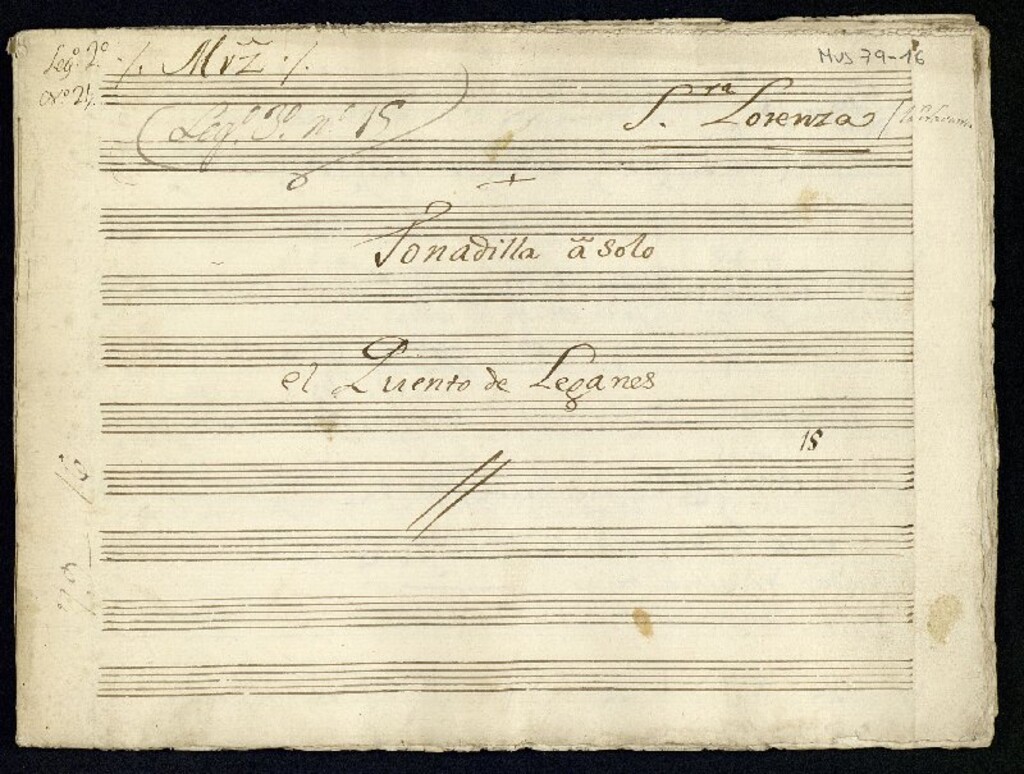 Leg.º 2.º ·/. Mrz̃ ·/. Mus 79-16
Nº 21,
(Leg.º 3.º nº 15) S.ra Lorenza
Tonadilla â Solo
el Quento de Leganes
15